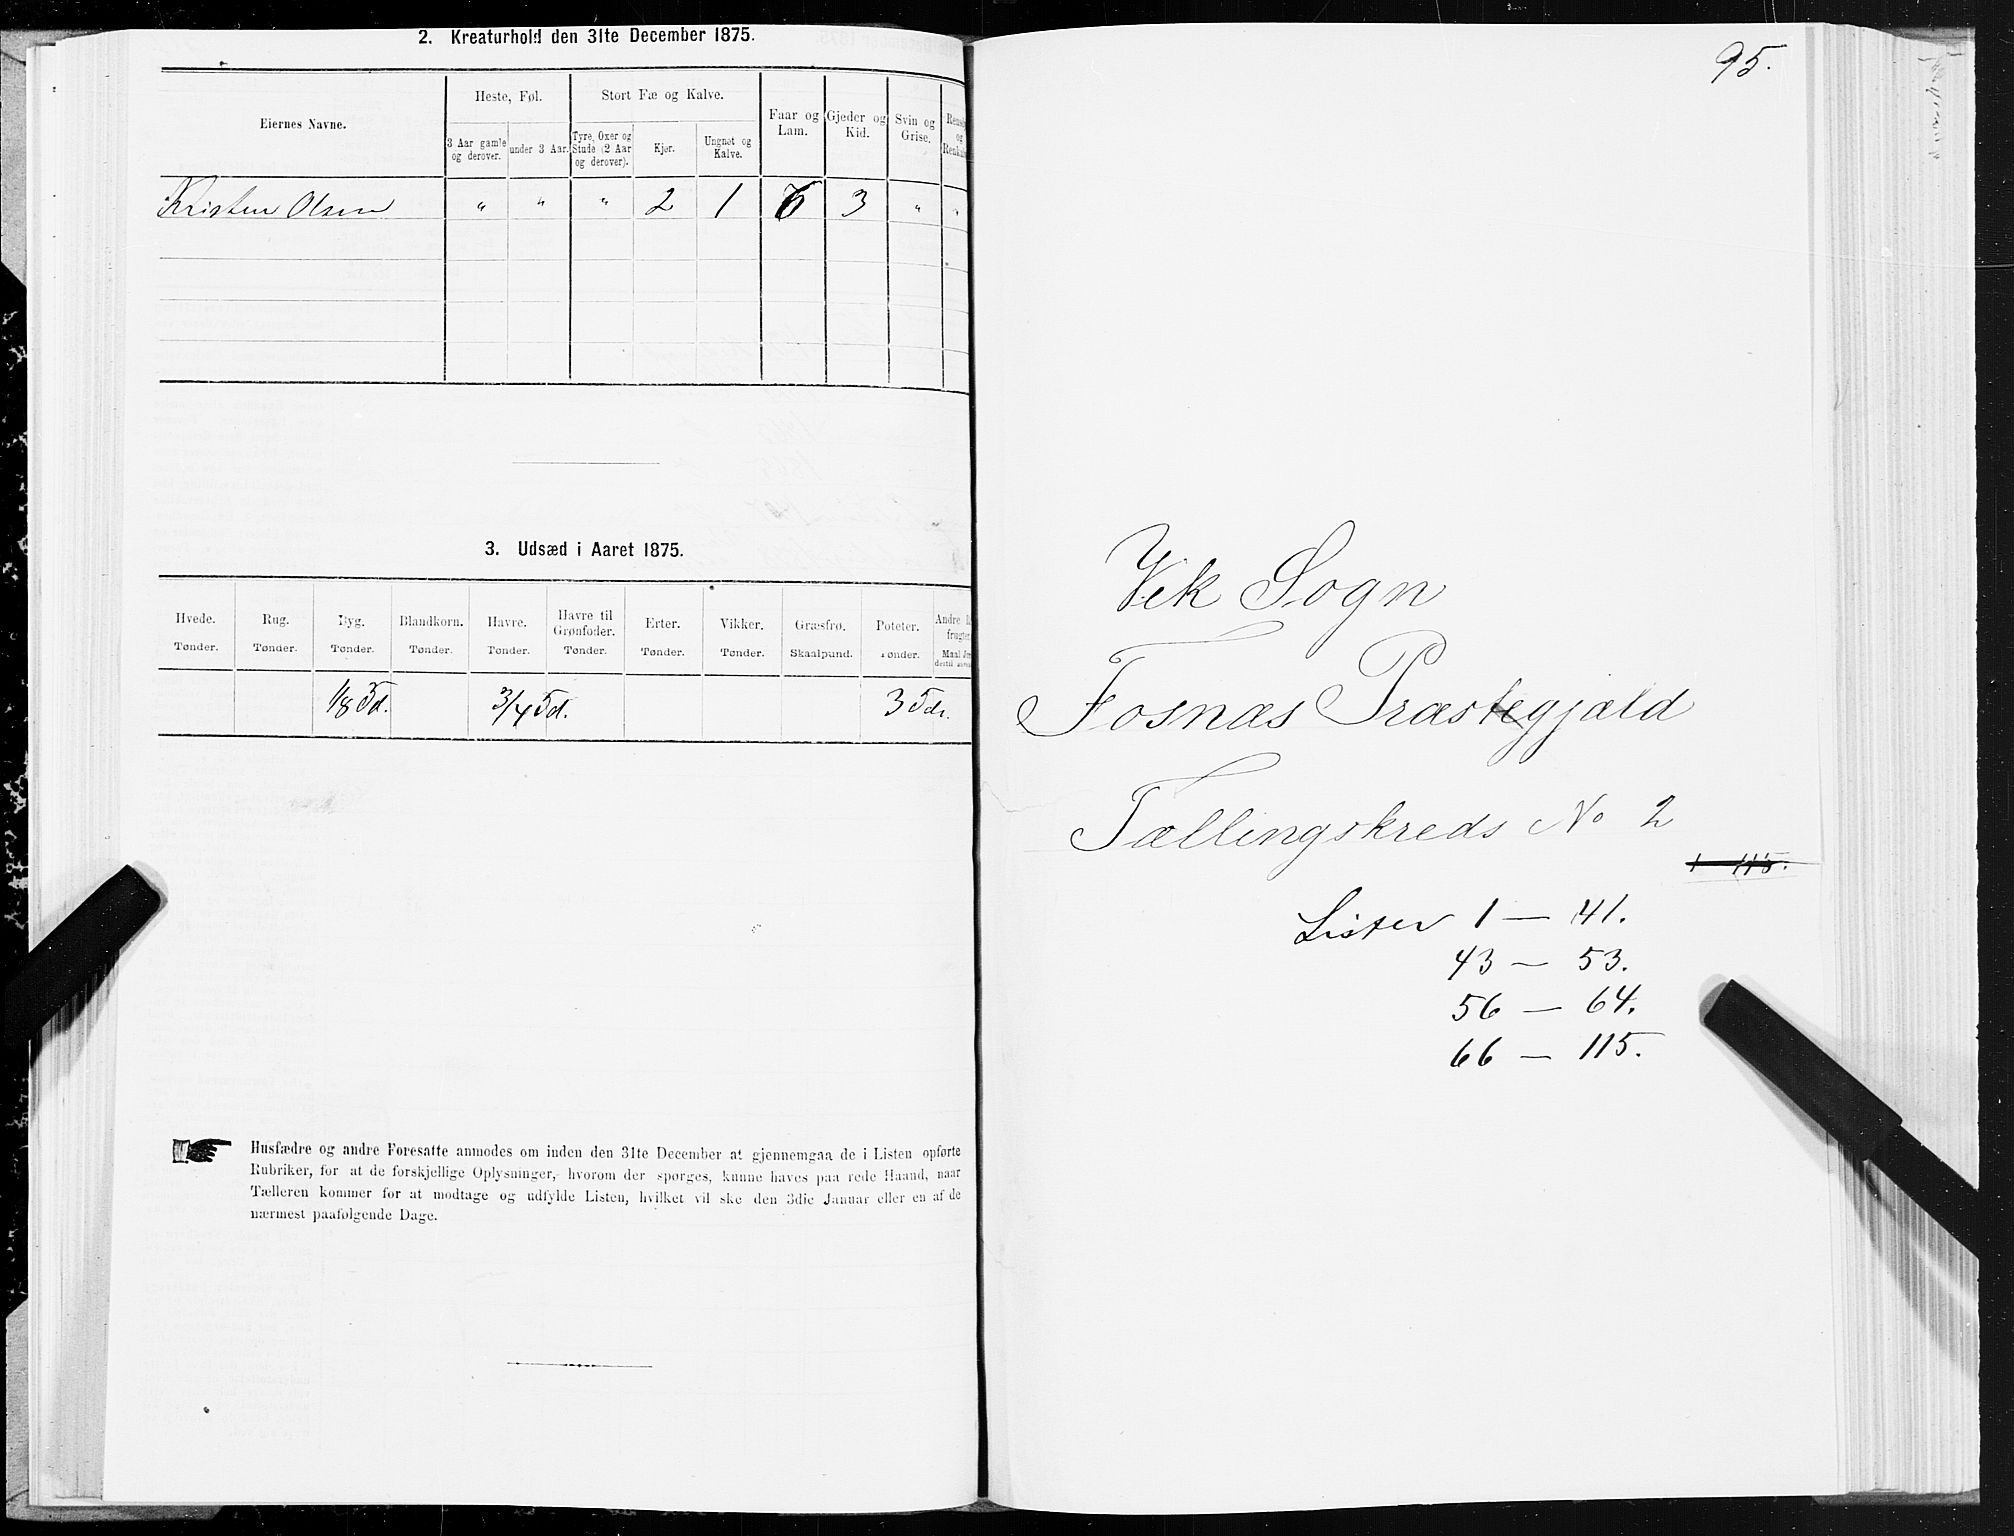 2. Kreaturhold den 31te December 1875.
Eiernes Navne.
Heste, Føl.
Stort Fæ og Kalve.
Faar og Lam.
Gjeder og Kid.
Svin og Grise.
3 Aar gamle og derover.
under 3 Aar.
Tyre, Oxer og Stude (2 Aar og derover).
Kjør.
Ungnøt og Kalve.
Kristen Olsen " " " 2 1 6 3 " "
3. Udsæd i Aaret 1875.
Hvede. Rug. Byg. Blandkorn. Havre. Havre til Grønfoder. Erter. Vikker. Græsfrø. Poteter. Andre
Tønder. Tønder. Tønder. Tønder. Tønder. Tønder. Tønder. Tønder. Skaalpund. Tønder.
1/8 Td. 3/4 Td. 3 Tdr.
Husfædre og andre Foresatte anmodes om inden den 31te December at gjennemgaa de i Listen opførte
Rubriker, for at de forskjellige Oplysninger, hvorom der spørges, kunne haves paa rede Haand, naar
Tælleren kommer for at modtage og udfylde Listen, hvilket vil ske den 3die Januar eller en af de
nærmest paafølgende Dage.
95.
Vik Sogn
Fosnæs Præstegjæld
Tællingskreds No 2
1 115.
Lister 1 — 41.
43 — 53.
56 — 64.
66 — 115.